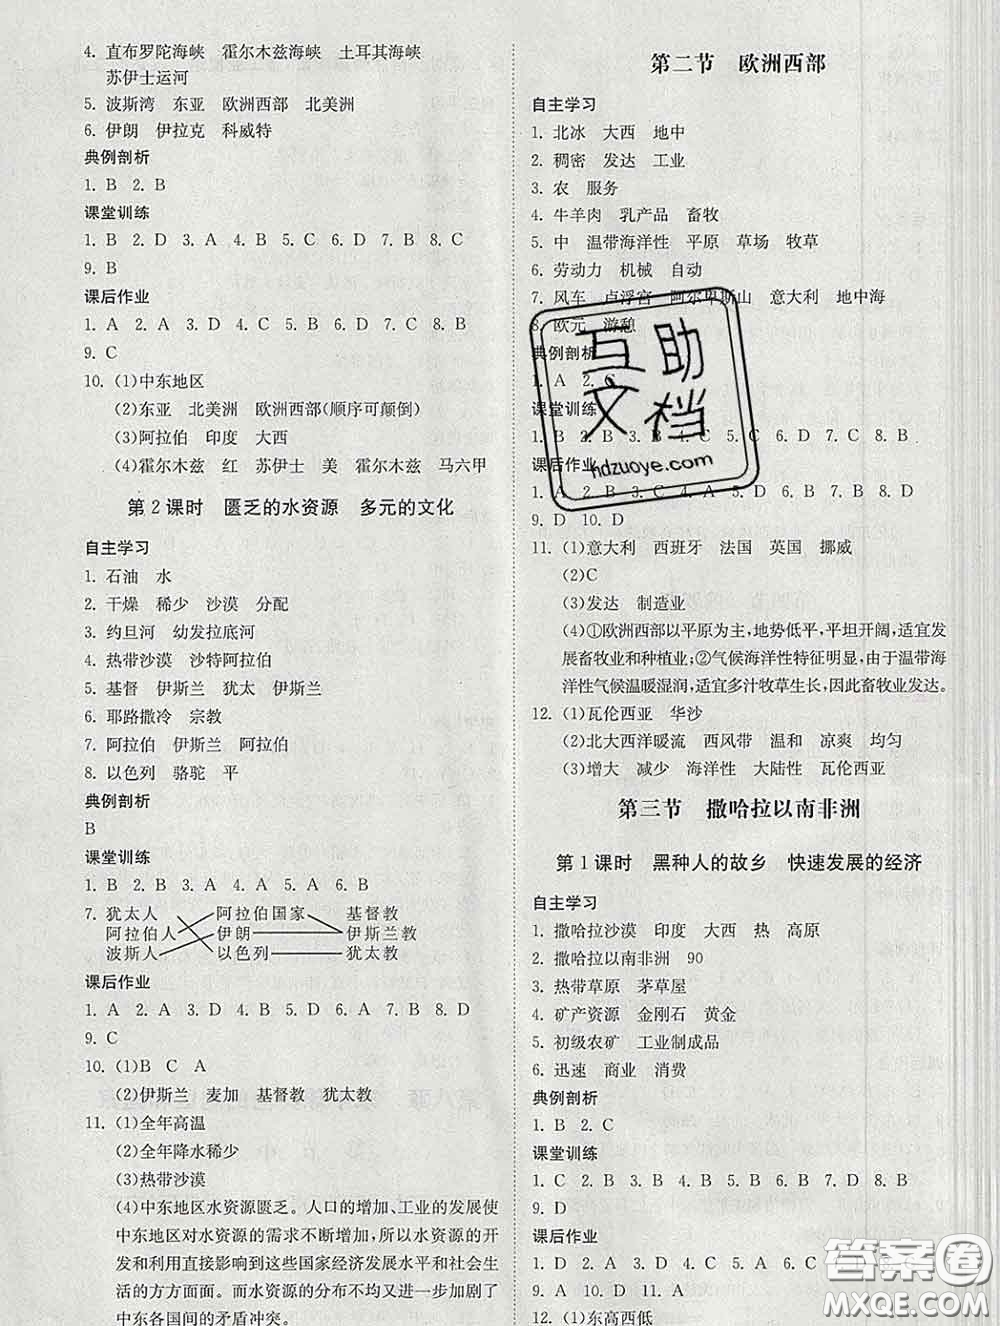 4. 直布罗陀海峡　霍尔木兹海峡　土耳其海峡
苏伊士运河
5. 波斯湾　东亚　欧洲西部　北美洲
6. 伊朗　伊拉克　科威特
典例剖析
1. B　2. B
课堂训练
1. B　2. D　3. A　4. B　5. C　6. D　7. B　8. C
9. B
课后作业
1. A　2. A　3. D　4. B　5. C　6. D　7. D　8. C
9. C
10. (1)中东地区
(2)东亚　北美洲　欧洲西部(顺序可颠倒)
(3)阿拉伯　印度　大西
(4)霍尔木兹　红　苏伊士　美　霍尔木兹　马六甲
第 2 课时　匮乏的水资源　多元的文化
自主学习
1. 石油　水
2. 干燥　稀少　沙漠　分配
3. 约旦河　幼发拉底河
4. 热带沙漠　沙特阿拉伯
5. 基督　伊斯兰　犹太　伊斯兰
6. 耶路撒冷　宗教
7. 阿拉伯　伊斯兰　阿拉伯
8. 以色列　骆驼　平
典例剖析
B
课堂训练
1. B　2. B　3. C　4. D　5. C　6. B
7. 犹太人　阿拉伯国家　基督教
阿拉伯人　伊朗　伊斯兰教
波斯人　以色列　犹太教
课后作业
1. A　2. A　3. D　4. D　5. D　6. A　7. B　8. D
9. C
10. (1)B　C　A
(2)伊斯兰　麦加　基督教　犹太教
11. (1)全年高温
(2)全年降水稀少
(3)热带沙漠
(4)中东地区水资源匮乏。人口的增加、工业的发展使
中东地区对水资源的需求不断增加,所以水资源的开
发和利用直接影响到这些国家经济发展水平和社会生
活的方方面面。而水资源的分布不均又进一步加剧了
中东各国间的矛盾冲突。
第二节　欧洲西部
自主学习
1. 北冰　大西　地中
2. 稠密　发达　工业
3. 农　服务
4. 牛羊肉　乳产品　畜牧
5. 中　温带海洋性　平原　草场　牧草
6. 劳动力　机械　自动
7. 风车　卢浮宫　阿尔卑斯山　意大利　地中海
8. 欧元　游憩
典例剖析
1. A　2. C
课堂训练
1. B　2. B　3. B　4. C　5. D　6. D　7. C　8. B
课后作业
1. D　2. B　3. A　4. B　5. D　6. D　7. B　8. D
9. D　10. D
11. (1)意大利　西班牙　法国　英国　挪威
(2)C
(3)发达　制造业
(4)①欧洲西部以平原为主,地势低平,平坦开阔,适宜发
展畜牧业和种植业;②气候海洋性特征明显,由于温带海
洋性气候温暖湿润,适宜多汁牧草生长,因此畜牧业发达。
12. (1)瓦伦西亚　华沙
(2)北大西洋暖流　西风带　温和　凉爽　均匀
(3)增大　减少　海洋性　大陆性　瓦伦西亚
第三节　撒哈拉以南非洲
第 1 课时　黑种人的故乡　快速发展的经济
自主学习
1. 撒哈拉沙漠　印度　大西　热　高原
2. 撒哈拉以南非洲　90
3. 热带草原　茅草屋
4. 矿产资源　金刚石　黄金
5. 初级农矿　工业制成品
6. 迅速　商业　消费
典例剖析
1. B　2. C
课堂训练
1. C　2. B　3. B　4. D　5. B　6. D　7. D　8. B
9. D
课后作业
1. D　2. D　3. A　4. C　5. B　6. B　7. C
9. A　10. D　11. D
12. (1)东高西低
互助
文档
hdzuoye.com
答案卷
MXQE.COM